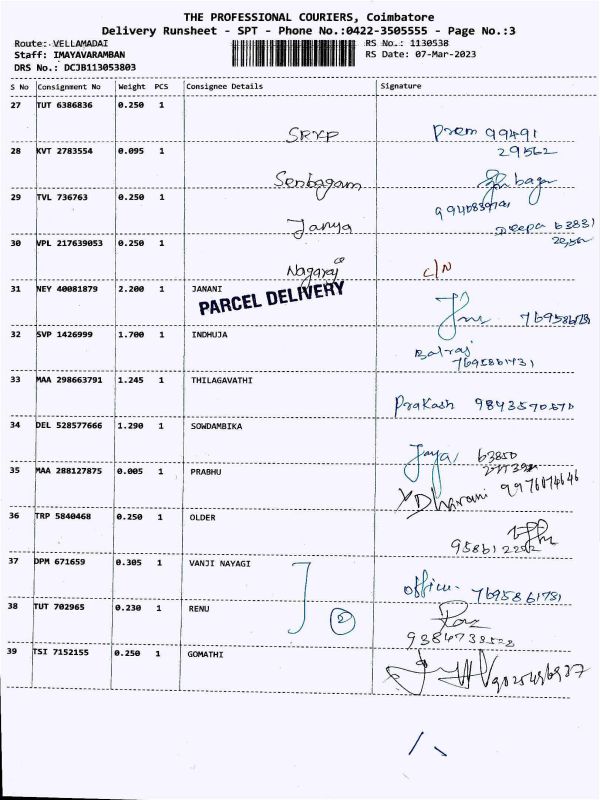 THE PROFESSIONAL COURIERS, Coimbatore
Delivery Runsheet - SPT - Phone No.:0422-3505555 - Page No.:3
Route: VELLAMADAI
RS No.: 1130538
Staff: IMAYAVARAMBAN
RS Date: 07-Mar-2023
DRS No.: DCJB113053803
S No Consignment No Weight PCS Consignee Details Signature
27 TUT 6386836 0.250 1
SRKP Prem 99491
29562
28 KVT 2783554 0.095 1
Senbagam
29 TVL 736763 0.250 1
Janya Deepa 63831
30 VPL 217639053 0.250 1
Nagaraj C/N
31 NEY 40081879 2.200 1 JANANI
PARCEL DELIVERY
32 SVP 1426999 1.700 1 INDHUJA
Balraj
7695861731
33 MAA 298663791 1.245 1 THILAGAVATHI
Prakash 9843570570
34 DEL 528577666 1.290 1 SOWDAMBIKA
Jaya 63850
35 MAA 288127875 0.005 1 PRABHU
Dharani 9976074646
36 TRP 5840468 0.250 1 OLDER
37 DPM 671659 0.305 1 VANJI NAYAGI
office. 7695861781
38 TUT 702965 0.230 1 RENU
2
39 TSI 7152155 0.250 1 GOMATHI